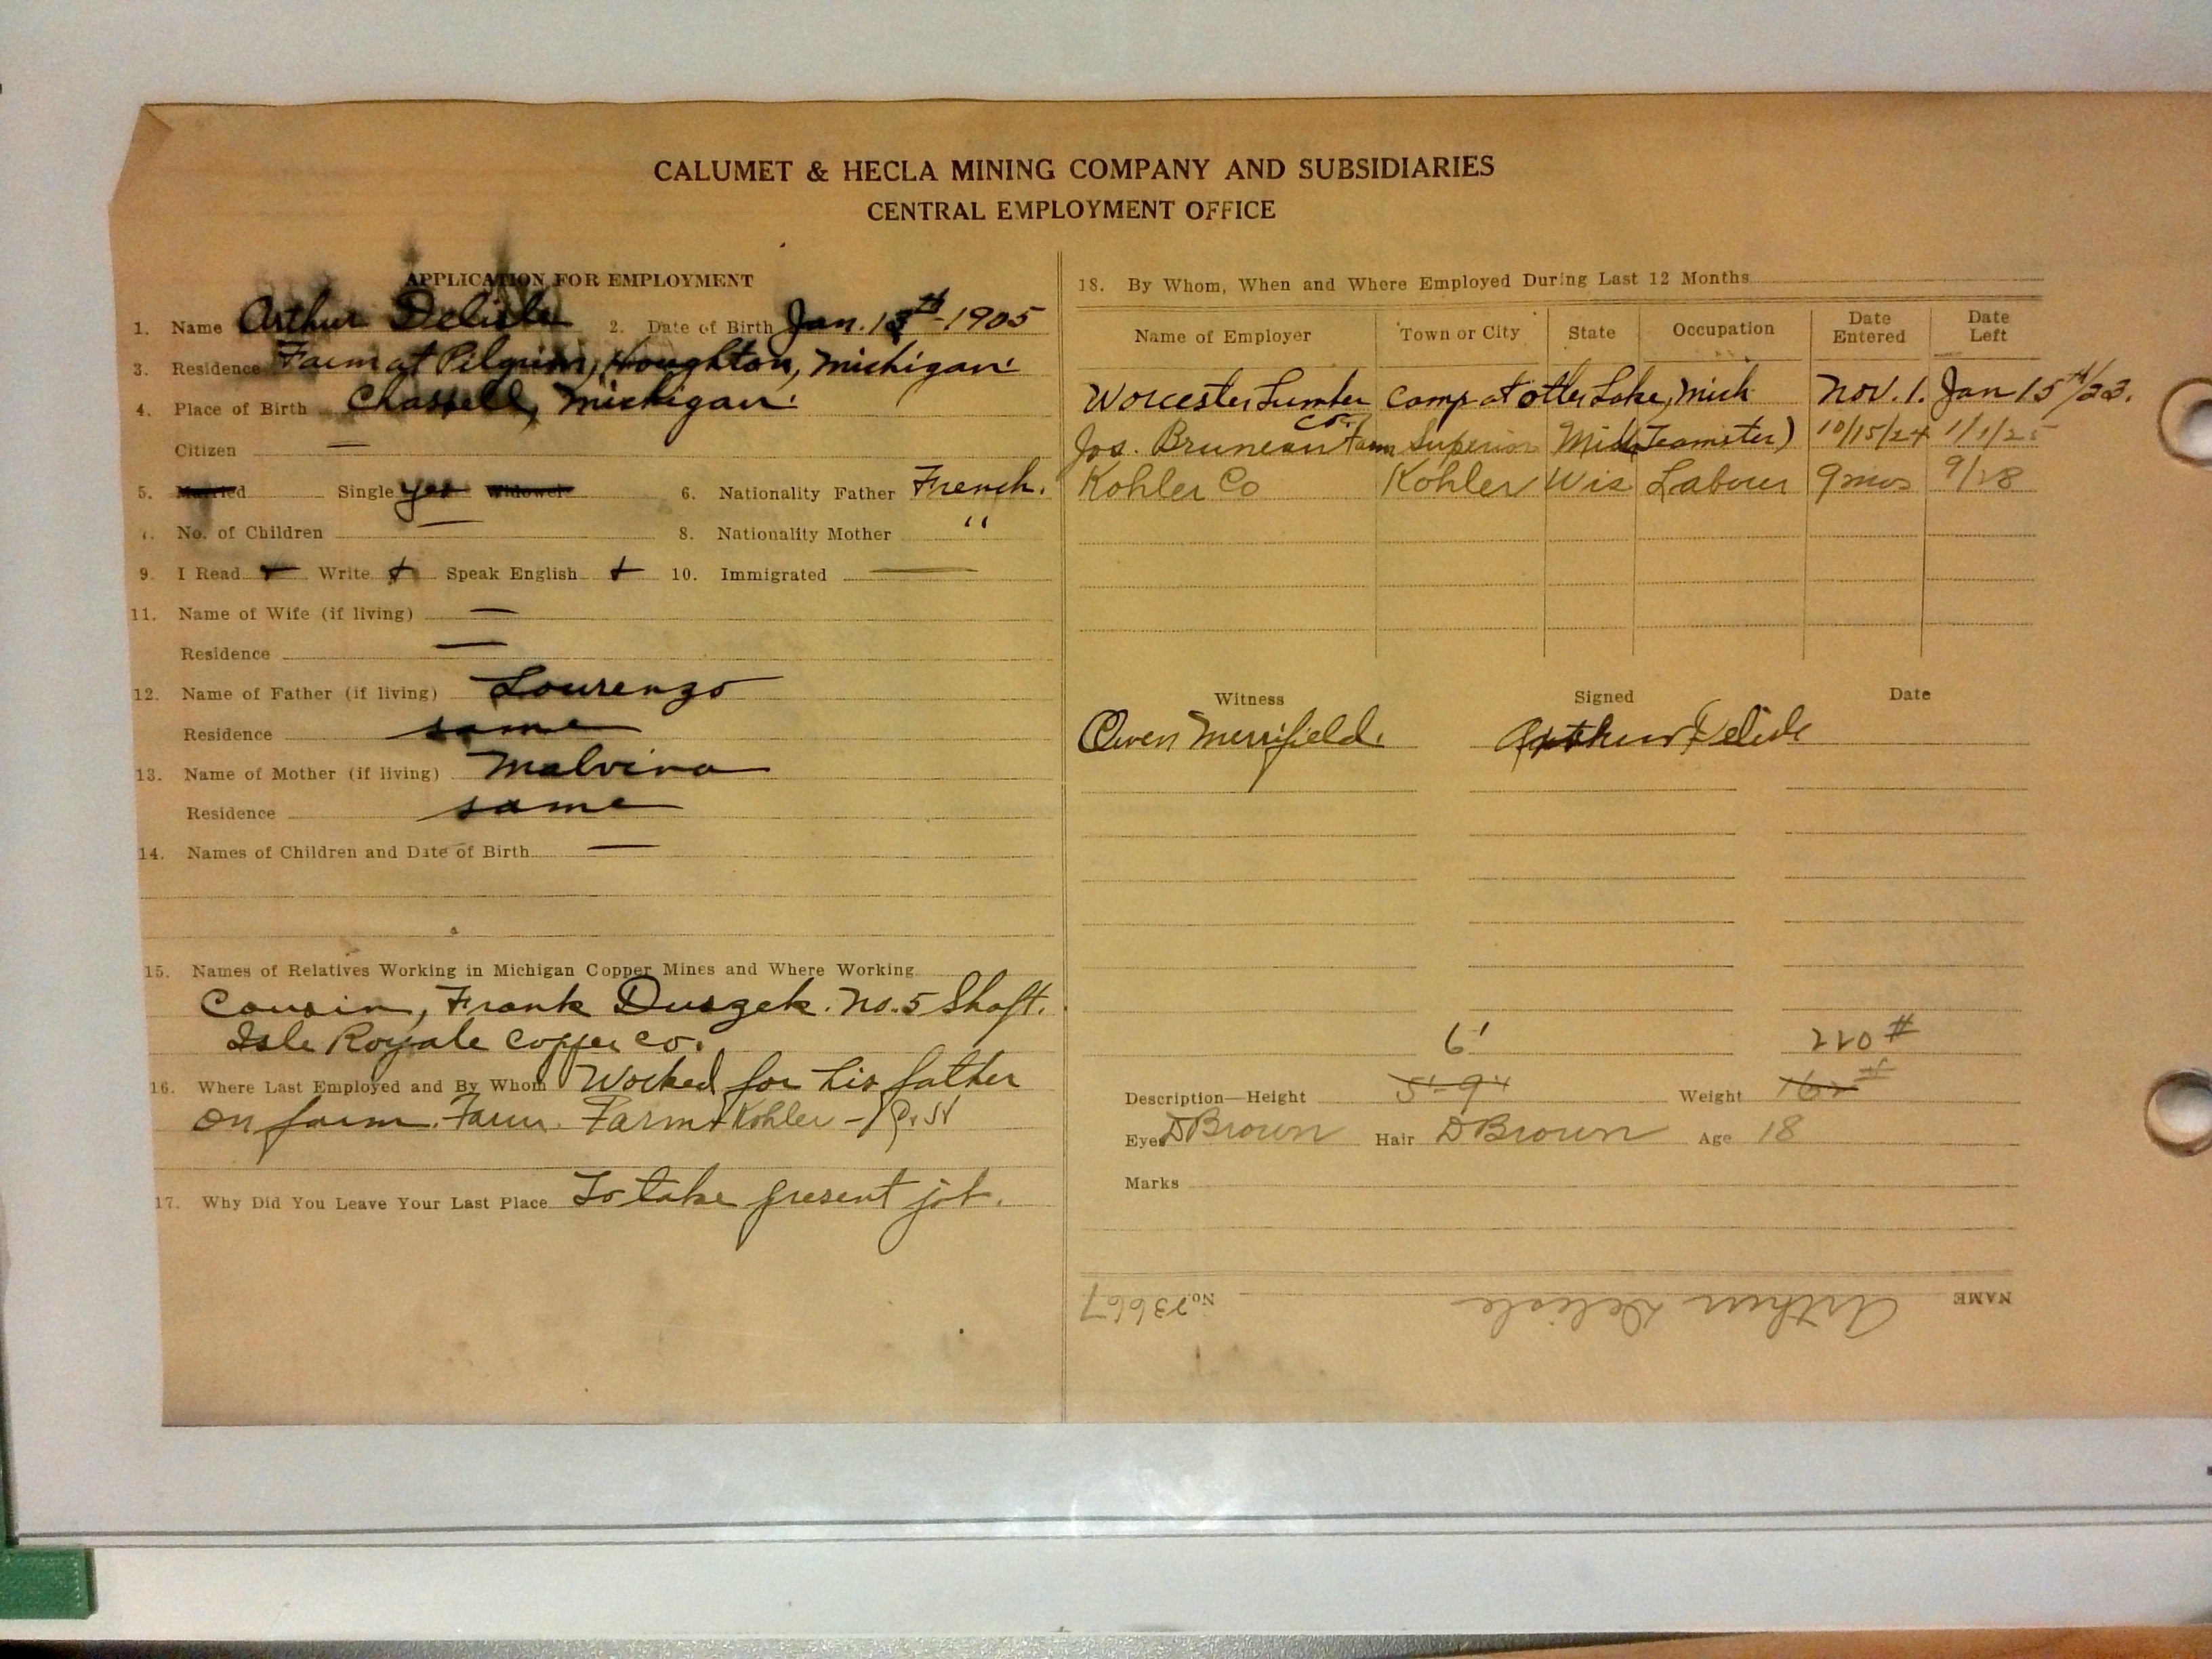 CALUMET & HECLA MINING COMPANY AND SUBSIDIARIES
CENTRAL EMPLOYMENT OFFICE
APPLICATION FOR EMPLOYMENT
1. Name Arthur Delisle 2. Date of Birth Jan. 13th - 1905
3. Residence Farm at Pilgrim, Houghton, Michigan.
4. Place of Birth Chassell, Michigan.
Citizen —
5. Married Single yes Widower 6. Nationality Father French.
7. No. of Children — 8. Nationality Mother "
9. I Read + Write + Speak English + 10. Immigrated —
11. Name of Wife (if living) —
Residence —
12. Name of Father (if living) Lourenzo
Residence same
13. Name of Mother (if living) Malvina
Residence same
14. Names of Children and Date of Birth —
15. Names of Relatives Working in Michigan Copper Mines and Where Working
Cousin, Frank Duszek. No. 5 Shaft.
Isle Royale Copper Co.
16. Where Last Employed and By Whom Worked for his father
on farm. Farm. Farm + Kohler -
17. Why Did You Leave Your Last Place To take present job.
18. By Whom, When and Where Employed During Last 12 Months
Name of Employer Town or City State Occupation Date Entered Date Left
Worcester Lumber Co. Camp at Otter Lake, Mich Nov. 1. Jan 15th/23.
Jos. Bruneau Farm Superior Mich (Teamster) 10/15/24 1/1/25
Kohler Co Kohler Wis Labour 9 mos 9/28
Witness Signed Date
Owen Merrifield. Arthur Delisle
6' 220 #
Description—Height 5'-9" Weight 162 #
Eyes D Brown Hair D Brown Age 18
Marks
NAME Arthur Delisle No. 23667